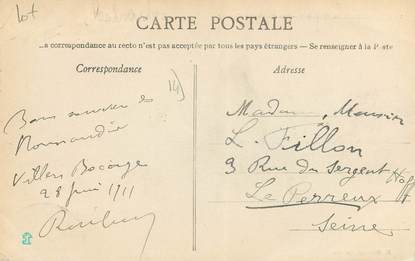 lot
CARTE POSTALE
La correspondance au recto n'est pas acceptée par tous les pays étrangers — Se renseigner à la Poste
Correspondance
Adresse
14)
Bons souvenir de
Normandie
Villers Bocage
28 Juin 1911
Madame, Monsieur
L. Fillon
3 Rue du Sergent Hoff
Le Perreux
Seine